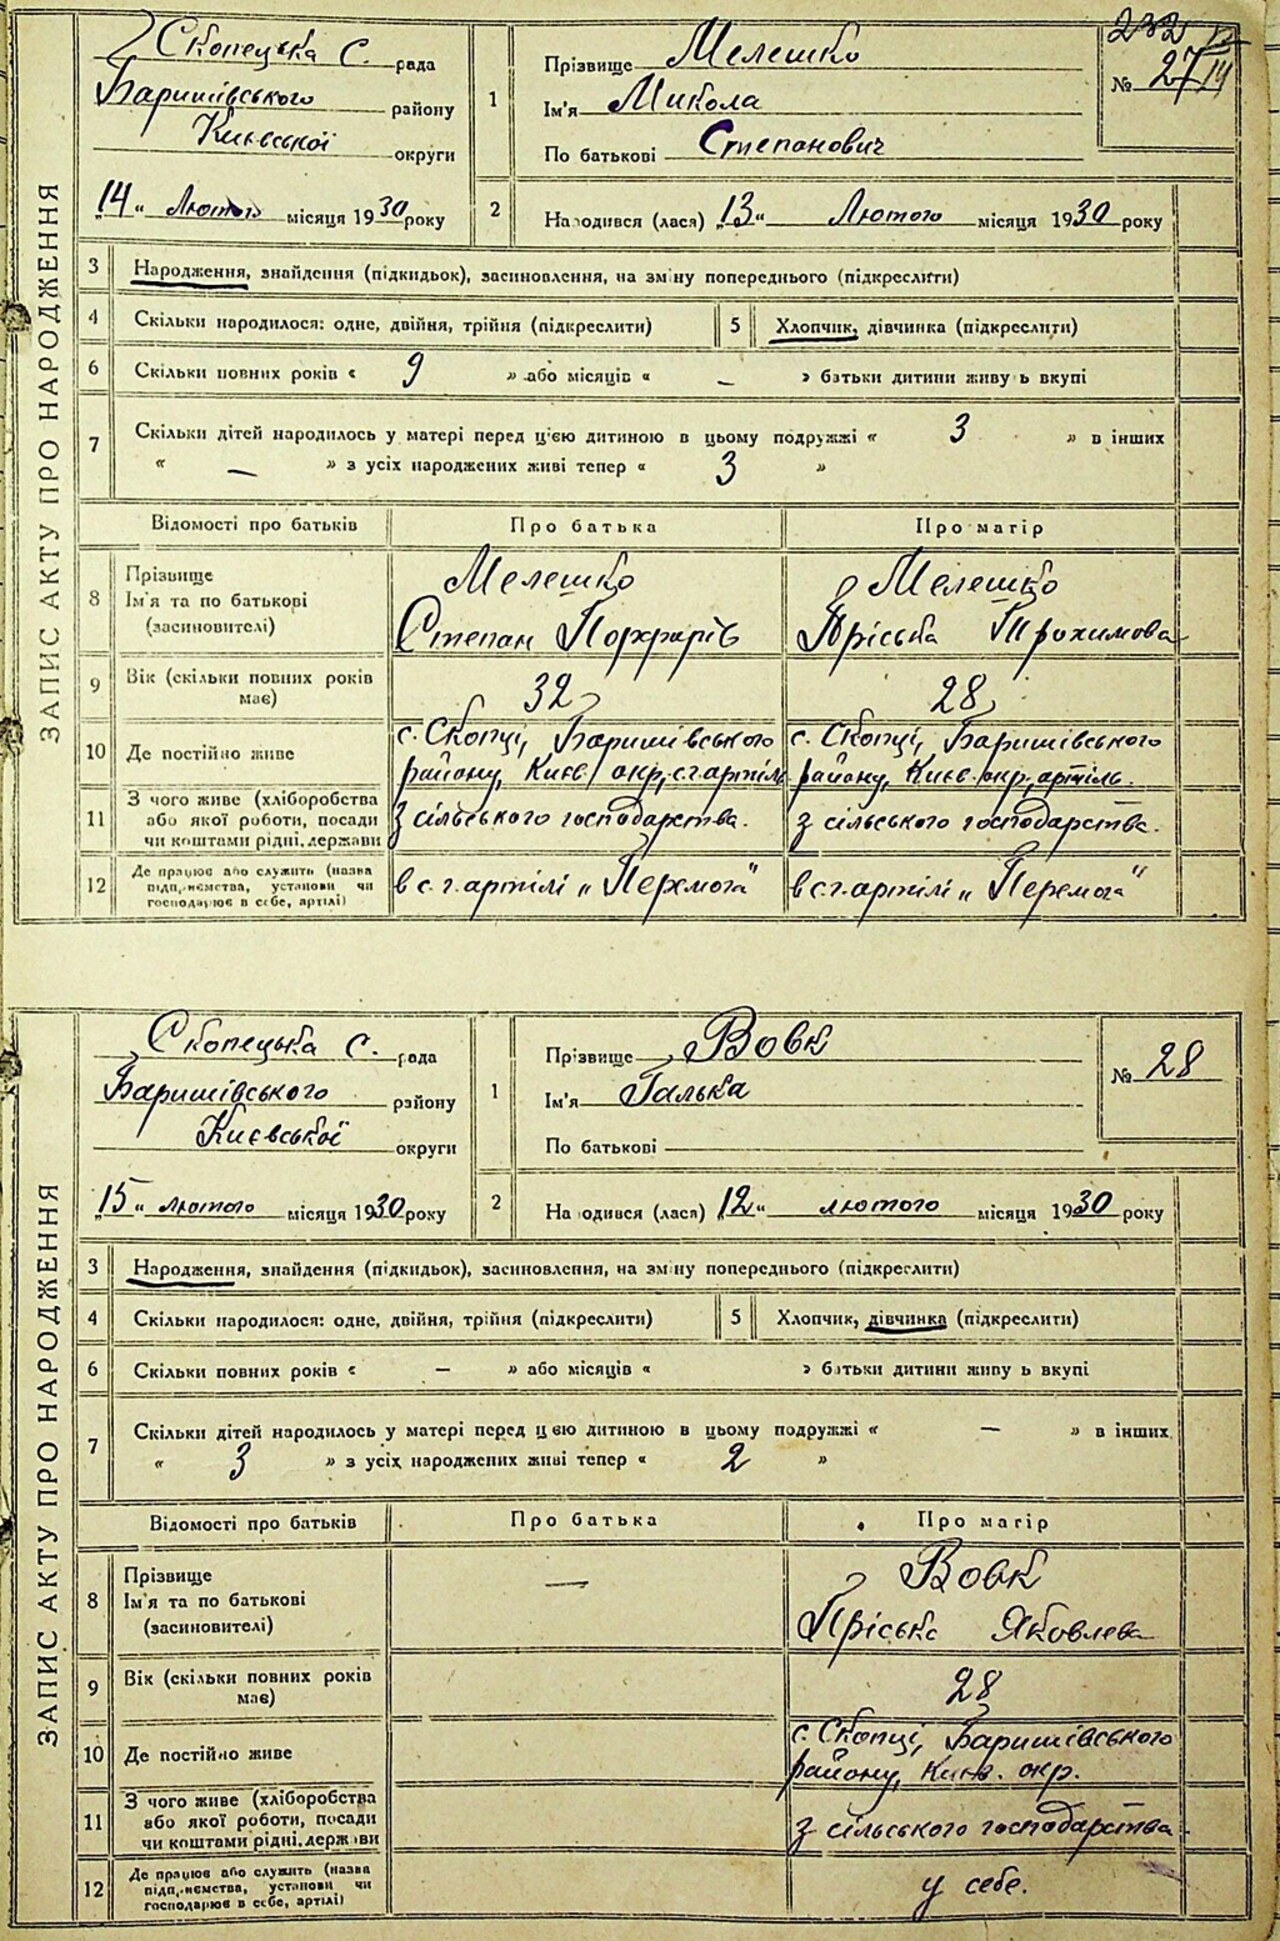 Скопецька С. рада
Баришівського району
Київської округи
„14“ Лютого місяця 1930 року
1
Прізвище Мелешко
Ім'я Микола
По батькові Степанович
232
№ 27
2
Народився (лася) „13“ Лютого місяця 1930 року
ЗАПИС АКТУ ПРО НАРОДЖЕННЯ
3 Народження, знайдення (підкидьок), засиновлення, на зміну попереднього (підкреслити)
4 Скільки народилося: одне, двійня, трійня (підкреслити)
5 Хлопчик, дівчинка (підкреслити)
6 Скільки повних років « 9 » або місяців « – » батьки дитини живуть вкупі
7 Скільки дітей народилось у матері перед цією дитиною в цьому подружжі « 3 » в інших
« — » з усіх народжених живі тепер « 3 »
Відомості про батьків Про батька Про матір
8 Прізвище
Ім'я та по батькові
(засиновителі)
Мелешко
Степан Порфирів
Мелешко
Пріська Трохимова
9 Вік (скільки повних років
має)
32
28
10 Де постійно живе
с. Скопці, Баришівського
району, Київ. окр, с.г. артіль
с. Скопці, Баришівського
району, Київ. окр, артіль.
11 З чого живе (хліборобства
або якої роботи, посади
чи коштами рідні, держави
З сільського господарства.
з сільського господарства.
12 Де працює або служить (назва
підприємства, установи чи
господарює в себе, артілі)
в с.г. артілі „Перемога“
в с.г. артілі „Перемога“
Скопецька С. рада
Баришівського району
Києвської округи
„15“ лютого місяця 1930 року
1
Прізвище Вовк
Ім'я Галька
По батькові
№ 28
2
Народився (лася) „12“ лютого місяця 1930 року
ЗАПИС АКТУ ПРО НАРОДЖЕННЯ
3 Народження, знайдення (підкидьок), засиновлення, на зміну попереднього (підкреслити)
4 Скільки народилося: одне, двійня, трійня (підкреслити)
5 Хлопчик, дівчинка (підкреслити)
6 Скільки повних років « – » або місяців « » батьки дитини живуть вкупі
7 Скільки дітей народилось у матері перед цією дитиною в цьому подружжі « — » в інших
« 3 » з усіх народжених живі тепер « 2 »
Відомості про батьків Про батька Про матір
8 Прізвище
Ім'я та по батькові
(засиновителі)
—
Вовк
Пріська Яковлева
9 Вік (скільки повних років
має)
28
10 Де постійно живе
с. Скопці, Баришівського
району, Київ. окр.
11 З чого живе (хліборобства
або якої роботи, посади
чи коштами рідні, держави
з сільського господарства.
12 Де працює або служить (назва
підприємства, установи чи
господарює в себе, артілі)
у себе.